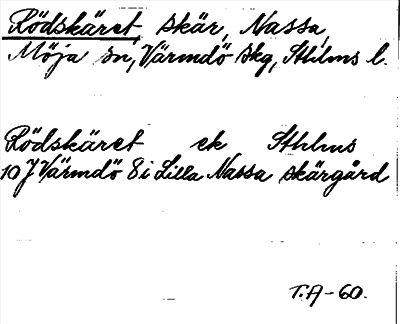 Rödskäret, skär, Nassa,
Möja sn, Värmdö skg, Sthlms l.
Rödskäret ek Sthlms
10 J Värmdö 8 i Lilla Nassa skärgård
T.A-60.